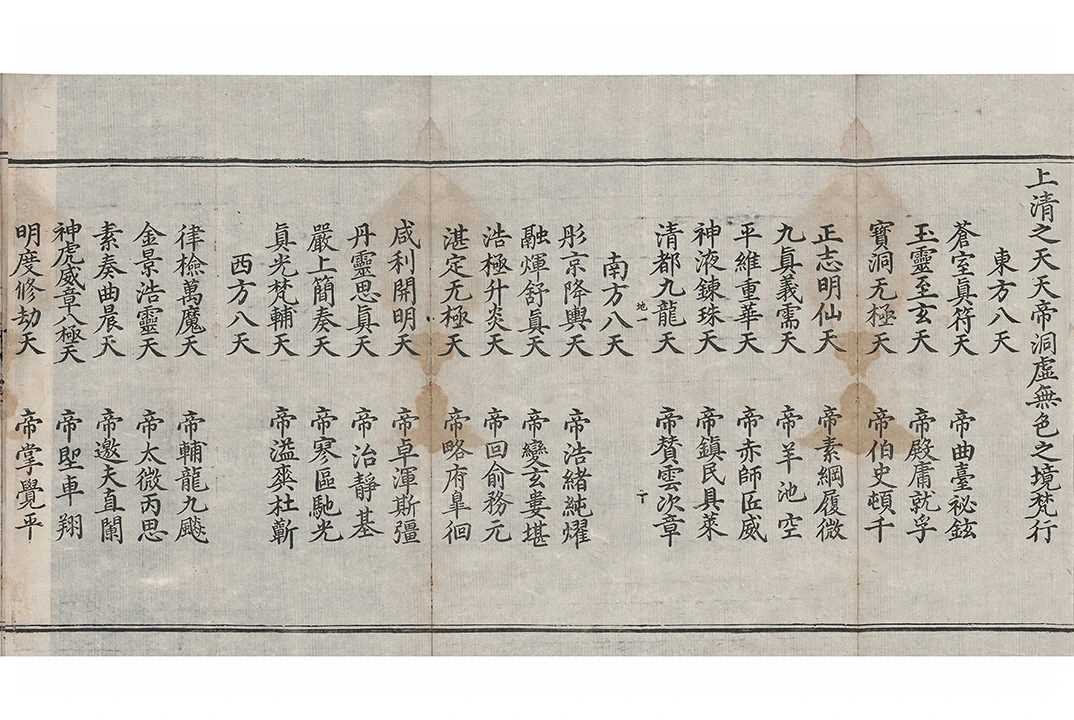 上清之天天帝洞虛無色之境梵行
東方八天
蒼室眞符天 帝曲臺祕鉉
玉靈至玄天 帝殿庸就孚
寶洞无極天 帝伯史頓千
正志明仙天 帝素綱履微
九眞義需天 帝羊池空
平維重華天 帝赤師匝威
神液鍊珠天 帝鎮民具萊
清都九龍天 帝賛雲次章
地一
南方八天
彤京降輿天 帝浩緒純燿
融煇舒眞天 帝變玄婁堪
浩極升炎天 帝回俞務元
湛定无極天 帝略府皐徊
咸利開明天 帝卓渾斯彊
丹靈思眞天 帝治靜基
嚴上簡奏天 帝寒區馳光
眞光梵輔天 帝溢爽杜蘄
西方八天
律檢萬魔天 帝輔龍九飈
金景浩靈天 帝太微丙思
素奏曲晨天 帝邀夫直闌
神虎威章八極天 帝聖車翔
明度修劫天 帝掌覺平